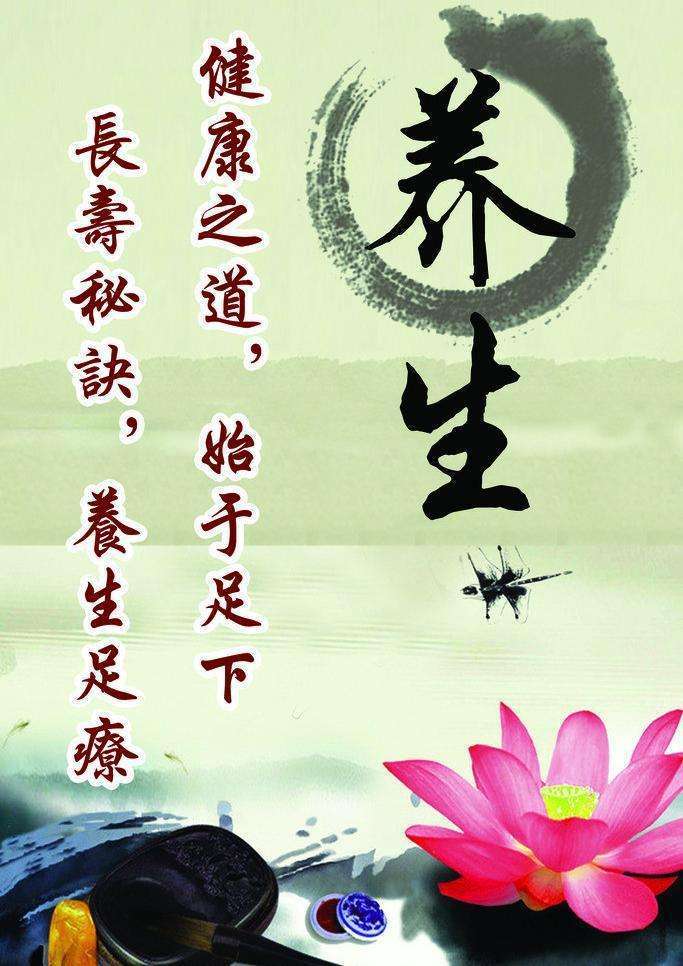 养生
健康之道，始于足下
長壽秘訣，養生足療